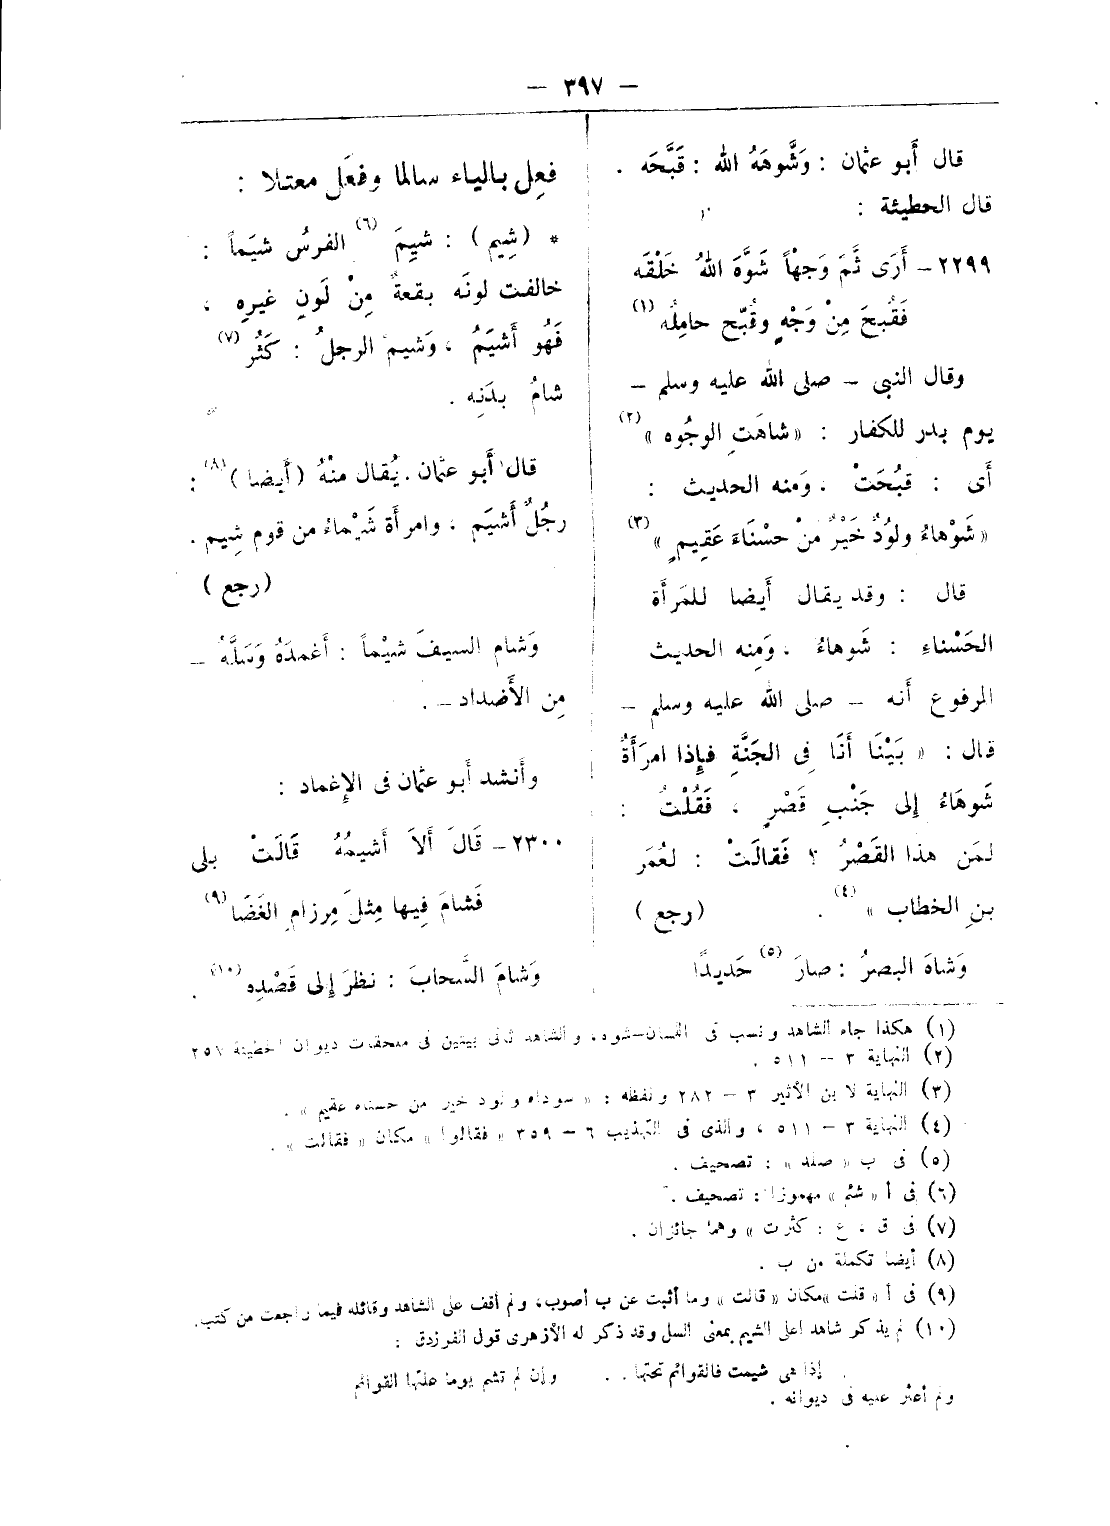 — ٣٩٧ —
قال أَبو عثمان : وَشَّوهَهُ الله : قَبَّحَه .
قال الحطيئة :
٢٢٩٩ – أَرَى ثَمَّ وَجهْاً شَوَّهَ اللهُ خَلْقَه
فَقُبحَ مِنْ وَجْهٍ وقُبّح حامِلُه (١)
وقال النبى – صلى الله عليه وسلم –
يوم بدر للكفار : «شاهَتِ الوجُوه» (٢)
أَى : قبُحَتْ ، وَمنه الحديث :
«شَوْهاءُ ولوُدٌ خَيْرٌ منْ حسْنَاءَ عَقِيمٍ» (٣)
قال : وقد يقال أَيضا للمَرأَة
الحَسْناءِ : شَوهاءُ ، وَمِنه الحديث
المرفوع أَنه – صلى الله عليه وسلم –
قال : « بَيْنَا أَنَا فِى الجَنَّةِ فإِذا امرَأَةٌ
شَوهَاءُ إلى جَنْبِ قَصْرٍ ، فَقُلْتُ :
لمَن هذا القَصْرُ ؟ فَقالَتْ : لعُمَر
بنِ الخطاب » (٤) . (رجع)
وَشاهَ البصرُ : صارَ (٥) حَديدًا
فعِل بالياء سالما وفعَل معتلا :
* (شِيم) : شيِمَ (٦) الفرسُ شيَماً :
خالفت لونَه بقعةٌ مِنْ لَونٍ غيرِهِ ،
فَهُو أَشيَمُ ، وَشيم الرجلُ : كَثُر (٧)
شامُ بدَنِه .
قال أَبو عثمان . يُقال منْهُ (أَيضا) (٨) :
رجُلٌ أَشيَم ، وامرأَة شَيْماءُ من قوم شِيم .
(رجع)
وَشام السيفَ شيْماً : أَغمدَهُ وَسَلَّهُ –
مِن الأَضداد – .
وأَنشد أَبو عثمان فى الإِغماد :
٢٣٠٠ – قَالَ أَلاَ أَشيمُهُ قَالَتْ بلى
فَشامَ فِيها مِثلَ مِرزامِ الغَضَا (٩)
وَشامَ السَّحابَ : نظرَ إِلى قَصْدِه (١٠) .
(١) هكذا جاء الشاهد ونسب فى اللسان–شوه، والشاهد ثانى بيتين فى ملحقات ديوان الحطيئة ٢٥٧
(٢) النهاية ٣ – ٥١١ .
(٣) النهاية لابن الأثير ٣ – ٢٨٢ ولفظه : « سوداء ولود خير من حسناء عقيم » .
(٤) النهاية ٣ – ٥١١ ، والذى فى التهذيب ٦ – ٣٥٩ « فقالوا » مكان « فقالت » .
(٥) فى ب « صلد » : تصحيف .
(٦) فى أ « شئم » مهموزا : تصحيف .
(٧) فى ق ، ع : كثرت » وهما جائزان .
(٨) أيضا تكملة من ب .
(٩) فى أ « قلت » مكان « قالت » وما أثبت عن ب أصوب، ولم أقف على الشاهد وقائله فيما راجعت من كتب.
(١٠) لم يذكر شاهدا على الشيم بمعنى السل وقد ذكر له الأزهرى قول الفرزدق :
إذا هى شيمت فالقوائم تحتها . . وإن لم تشم يوما علتها القوائم
ولم أعثر عليه فى ديوانه .